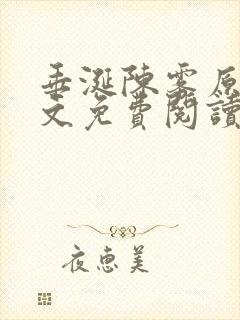 垂涎陳雾原
文免費閱讀
夜惠美